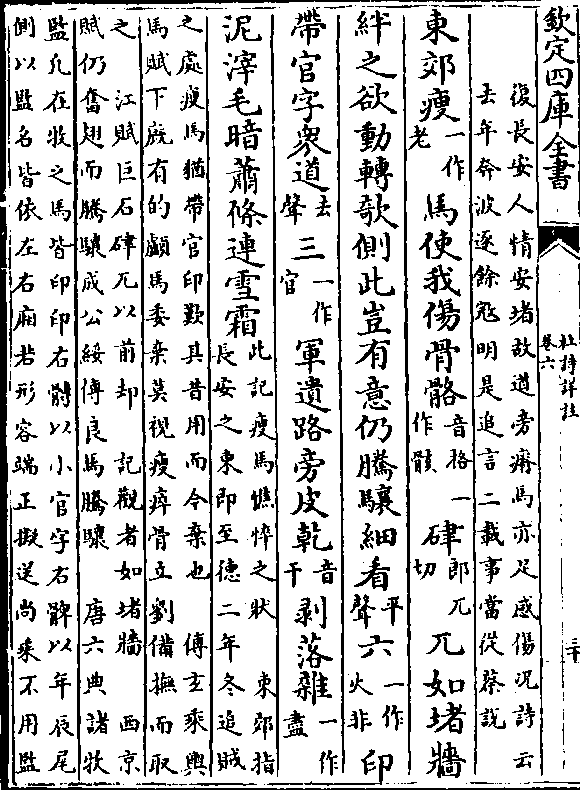 欽定四庫全書
杜詩詳註
卷六
二十
復長安人情安堵故道旁瘠馬亦足感傷況詩云
去年奔波逐餘寇明是追言二載事當從蔡說
東郊瘦一作老馬使我傷骨骼音格一作骸硉郎兀切兀如堵牆
絆之欲動轉欹側此豈有意仍騰驤細看平聲六一作火非印
帶官字衆道去聲三一作官軍遺路旁皮乾音干剥落雜一作盡
泥滓毛暗蕭條連雪霜此記瘦馬憔悴之狀 東郊指
長安之東即至德二年冬追賊
之處瘦馬猶帶官印歎其昔用而今棄也 傅玄乘輿
馬賦下廐有的顱馬委棄莫視瘦瘁骨立劉備撫而取
之 江賦巨石硉兀以前却 記觀者如堵牆 西京
賦仍奮翅而騰驤成公綏傳良馬騰驤 唐六典諸牧
監凡在牧之馬皆印印右髆以小官字右髀以年辰尾
側以監名皆依左右廂若形容端正擬送尚乘不用監